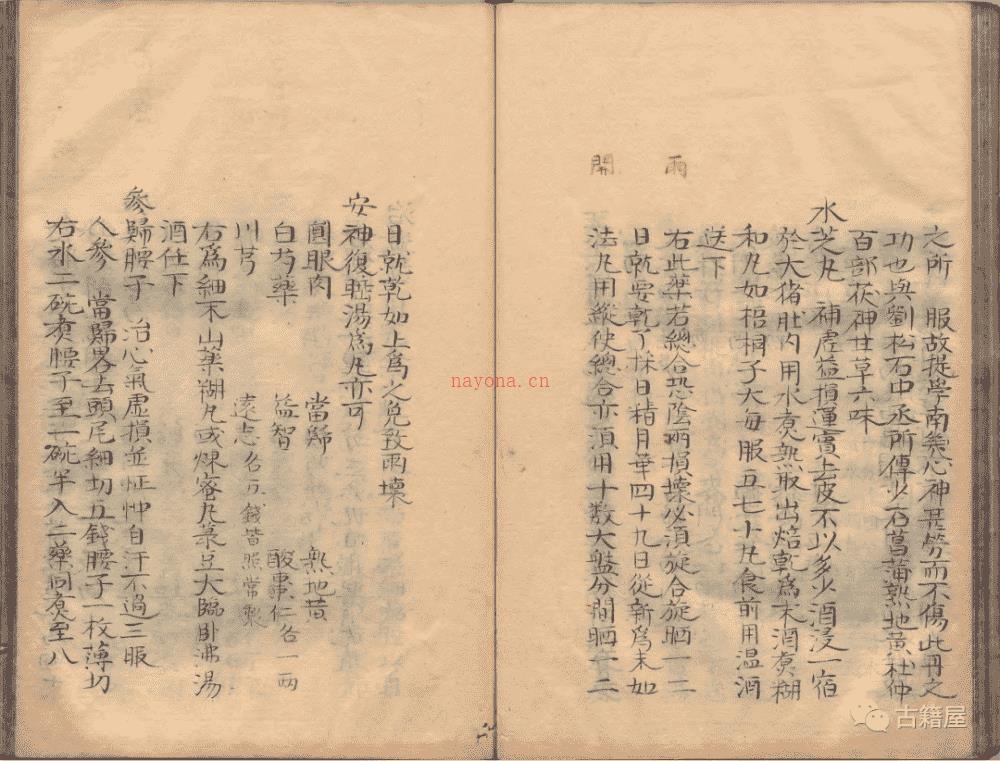 之所服故提學南㡬心神甚勞而不傷此丹之
功也與劉松石中丞所傳少石菖蒲熟地黃杜仲
百部茯神甘草六味
水芝丸 補虛益損運實去皮不以多少酒浸一宿
於大猪肚內用水煮熟取出焙乾爲末酒煮糊
和丸如梧桐子大每服五七十丸食前用温酒
送下
雨
右此藥若總合恐陰雨損壞必須旋合旋晒一二
日就要乾了採日精月華四十九日從新爲末如
開
法丸用縱使總合亦須用十數大盤分開晒一二
日就乾如上爲之免致雨壞
安神復睡湯爲丸亦可
圓眼肉 當歸 熟地黃
白芍藥 益智 酸棗仁各一兩
川芎 遠志各五錢皆照常製
右爲細末山藥糊丸或煉蜜丸菉豆大臨卧沸湯
酒任下
參歸腰子 治心氣虛損並怔忡自汗不過三服
人參 當歸各去頭尾細切五錢腰子一枚薄切
右水二碗煮腰子至一碗半入二藥同煮至八
nayona.cn
古籍屋